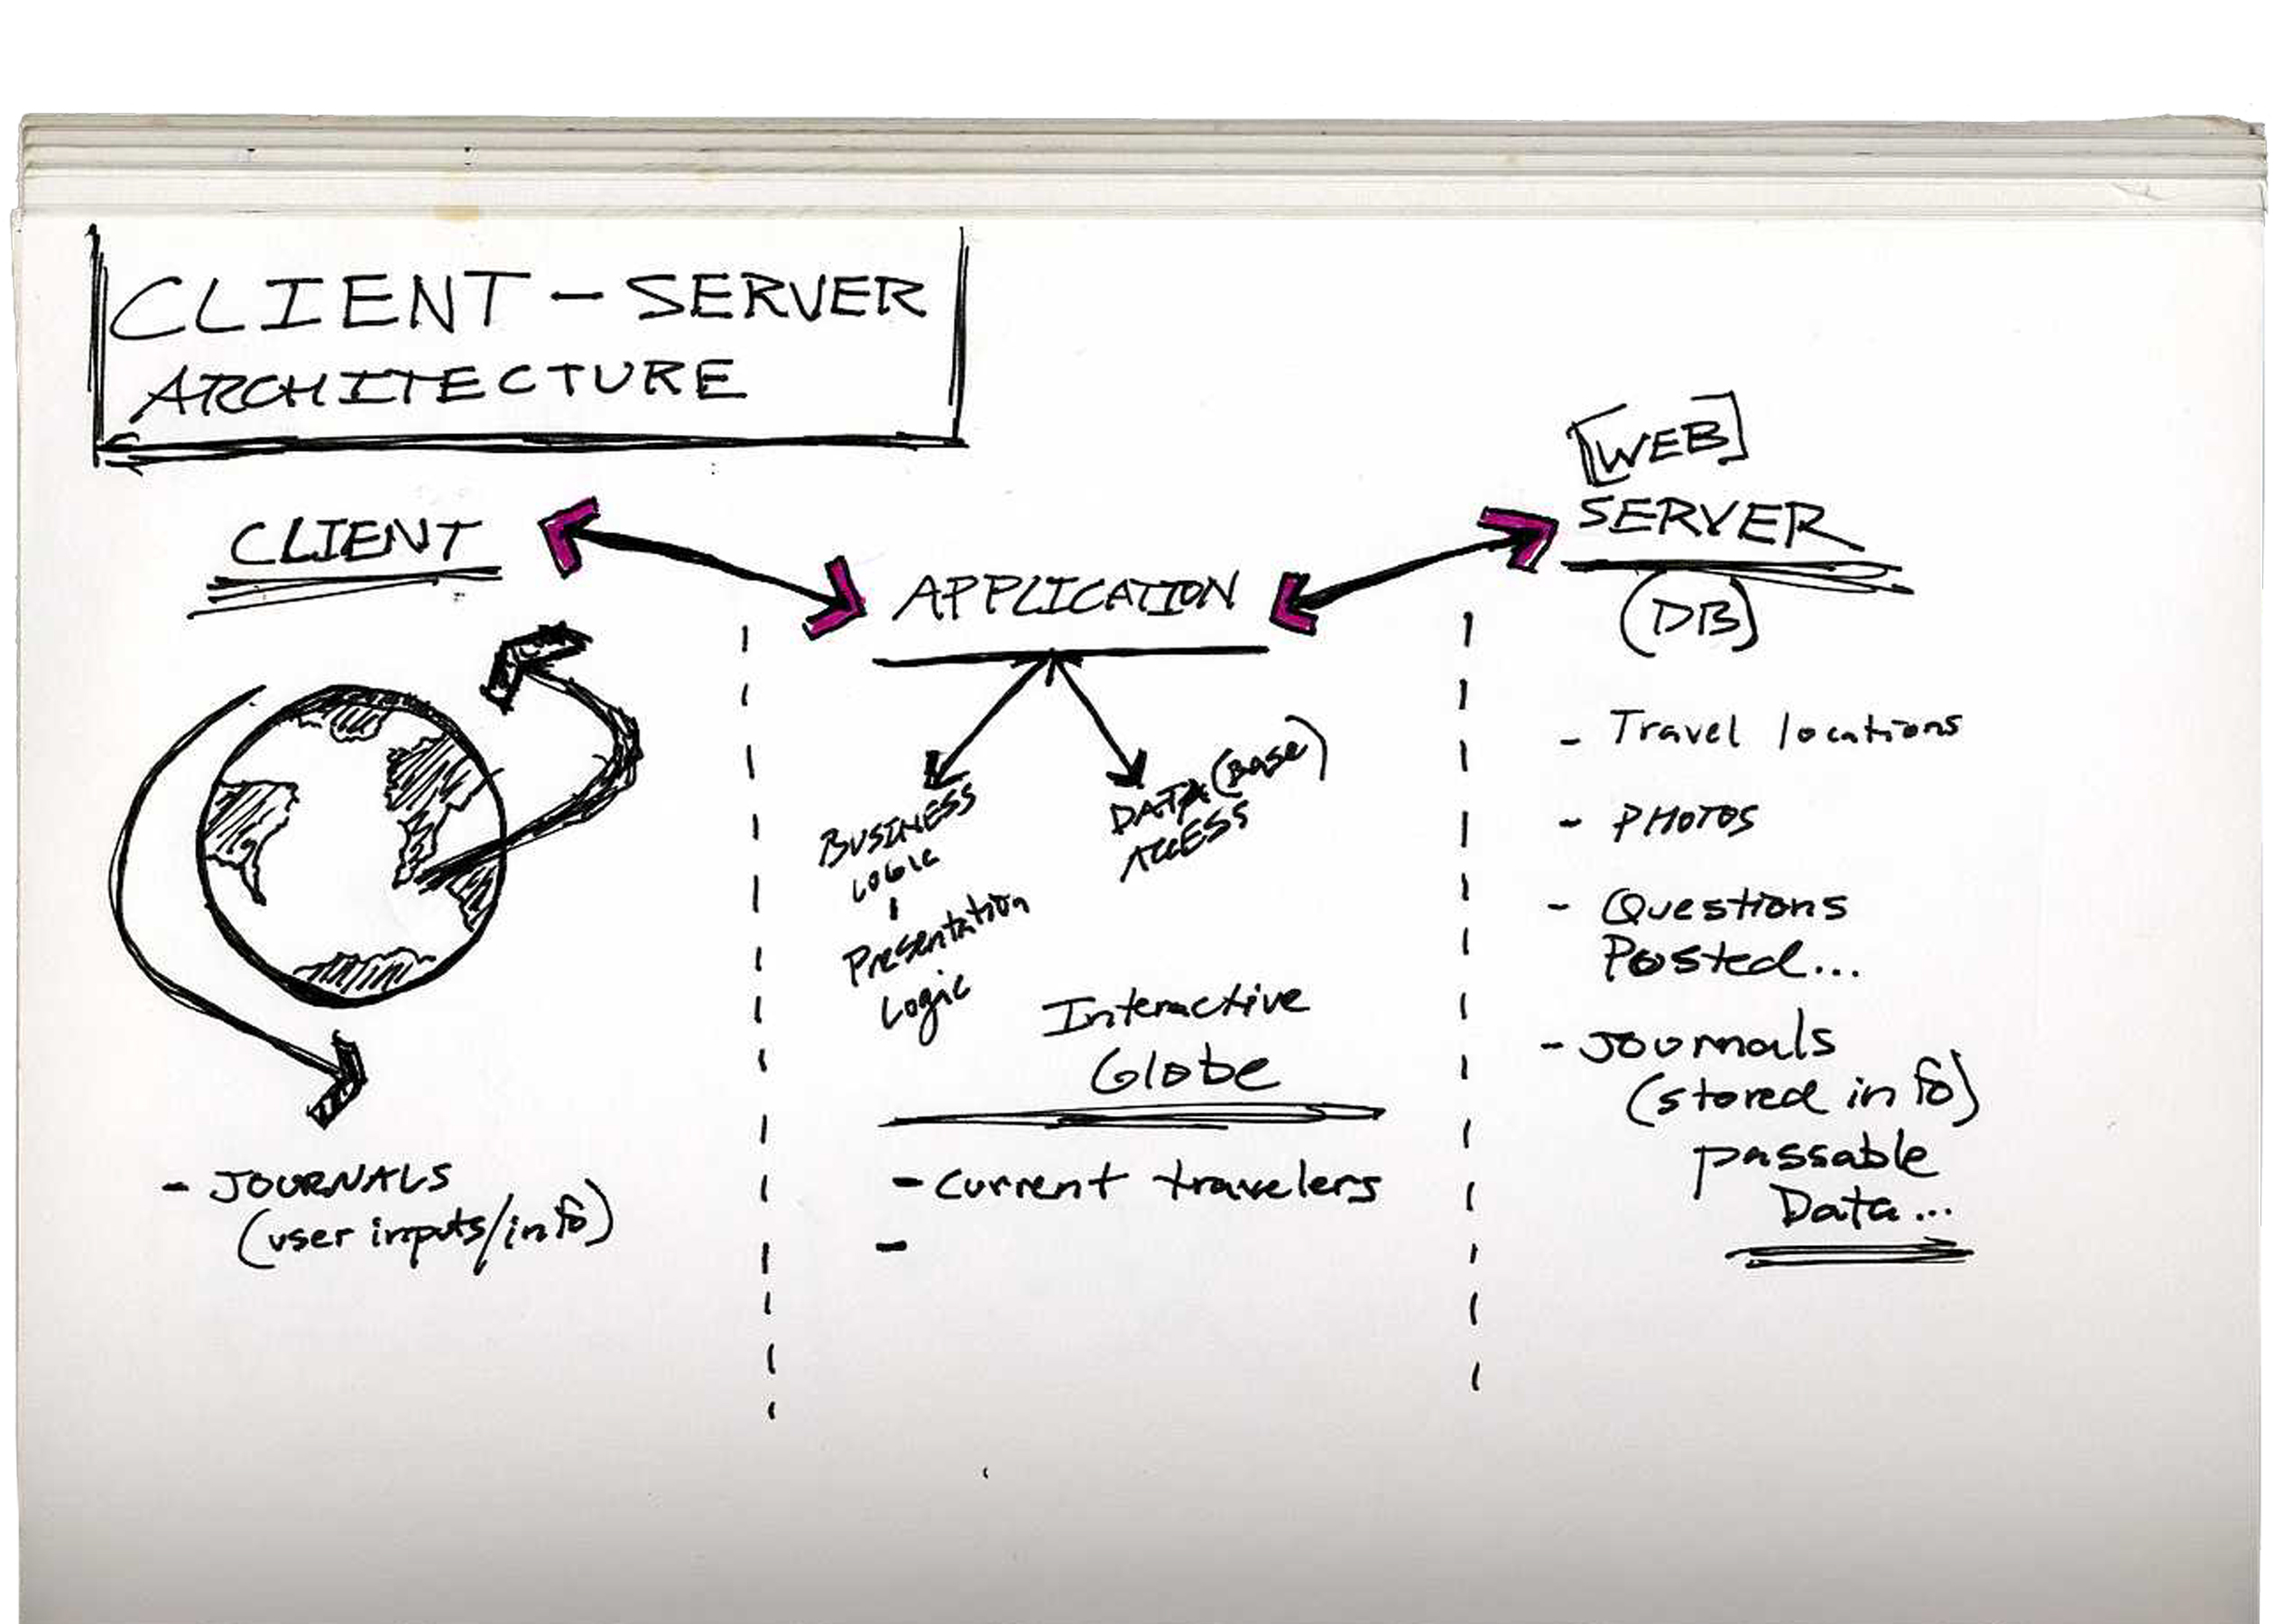 CLIENT - SERVER
ARCHITECTURE
CLIENT
- JOURNALS
(user inputs/info)
APPLICATION
BUSINESS
LOGIC
Presentation
Logic
DATA (Base)
ACCESS
Interactive
Globe
- Current travelers
-
[WEB]
SERVER
(DB)
- Travel locations
- PHOTOS
- Questions
Posted...
- Journals
(stored info)
passable
Data...